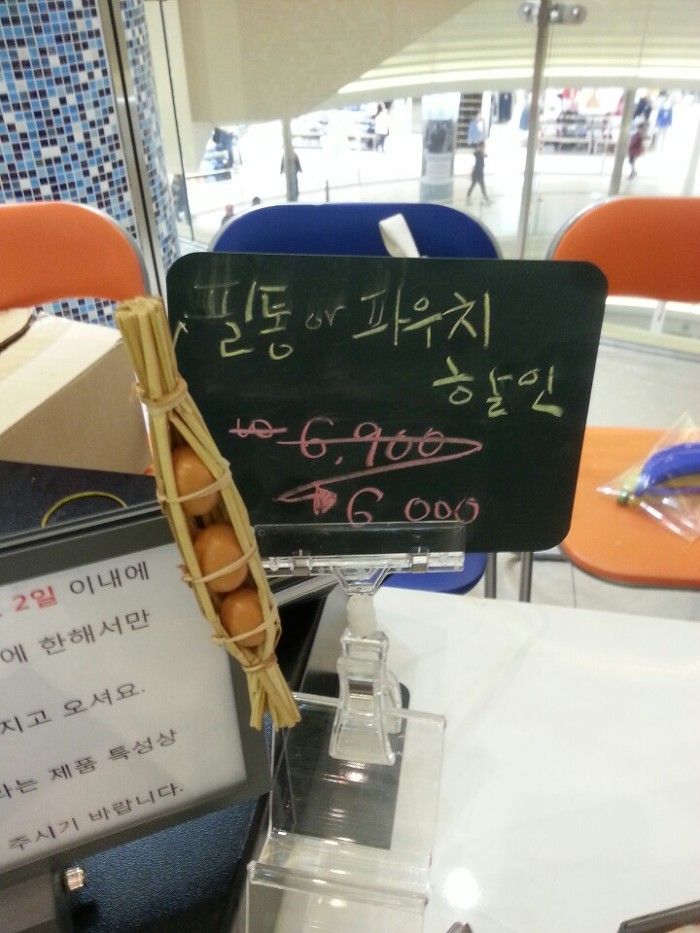 필통 or 파우치
할인
6,900
6 000
2일 이내에
에 한해서만
지고 오셔요.
라는 제품 특성상
주시기 바랍니다.